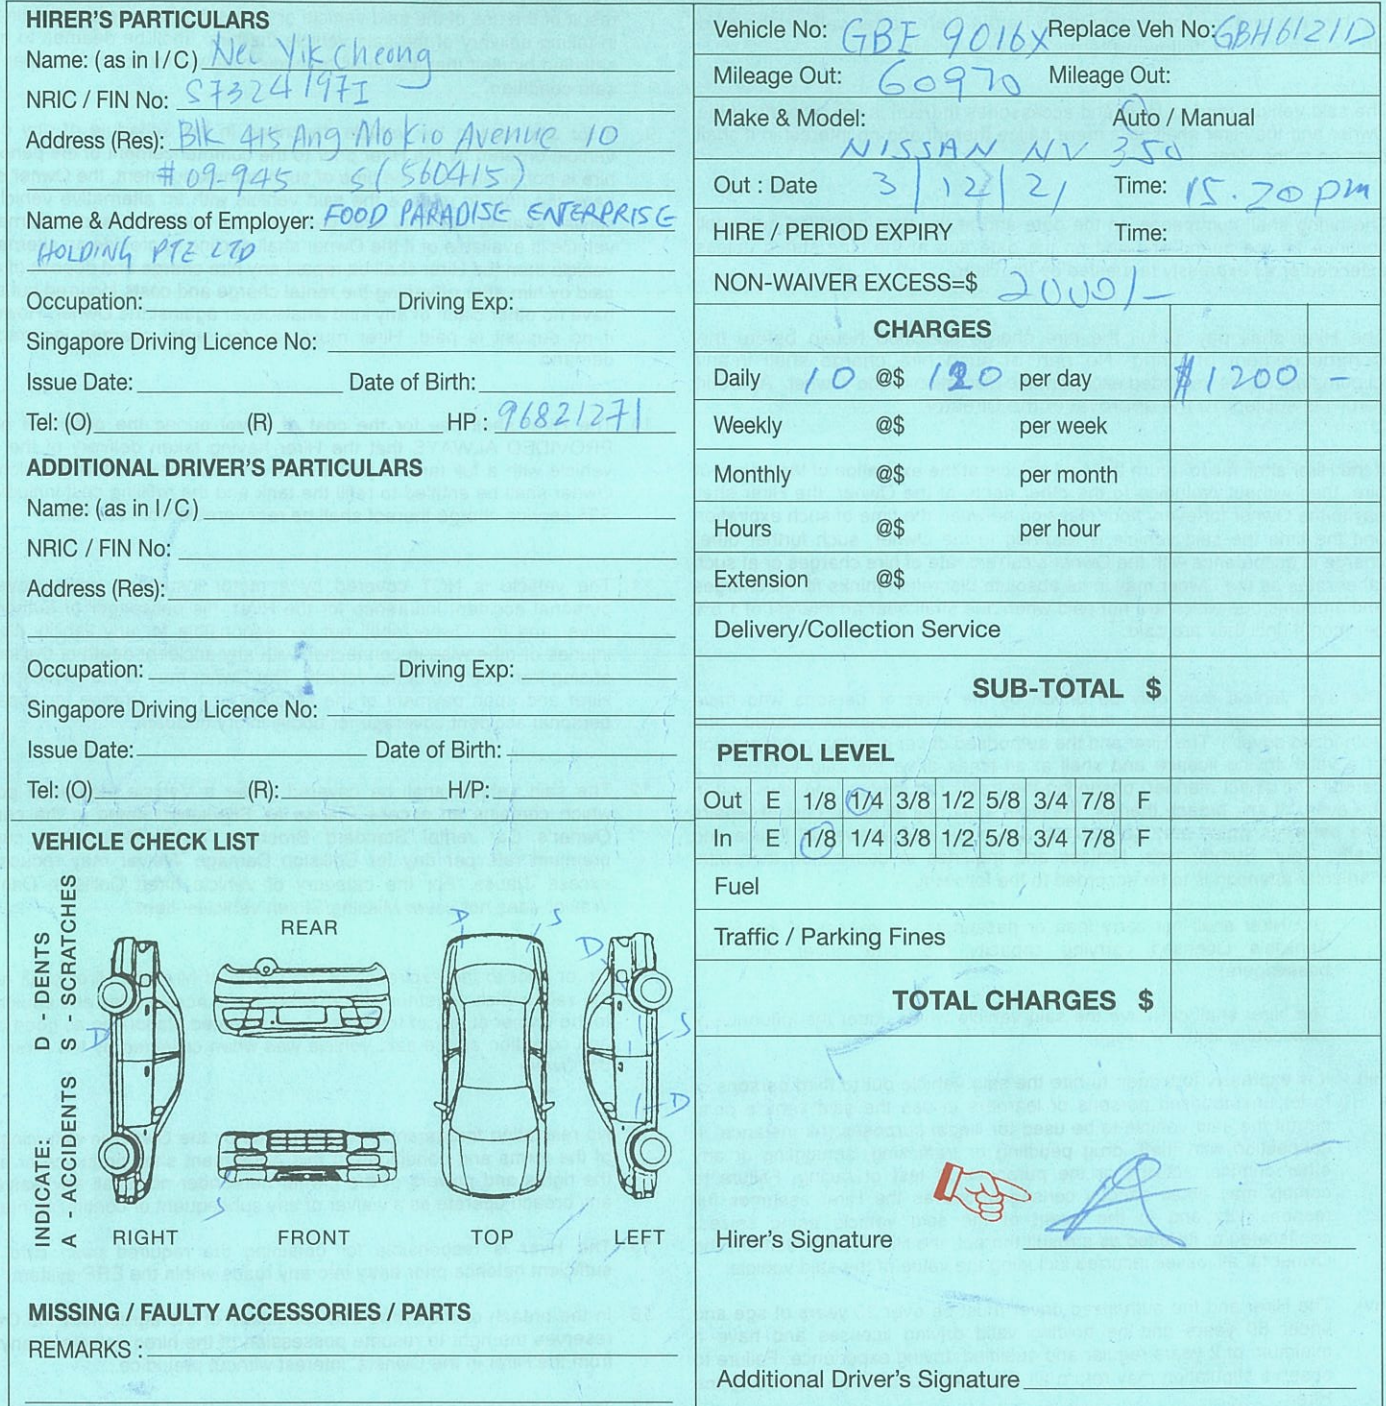 HIRER'S PARTICULARS
Name: (as in I/C) Neo Yik Cheong
NRIC / FIN No: S7324197I
Address (Res): Blk 415 Ang Mo Kio Avenue 10
#09-945 S(560415)
Name & Address of Employer: FOOD PARADISE ENTERPRISE
HOLDING PTE LTD
Occupation: Driving Exp:
Singapore Driving Licence No:
Issue Date: Date of Birth:
Tel: (O) (R) HP: 96821271
ADDITIONAL DRIVER'S PARTICULARS
Name: (as in I/C)
NRIC / FIN No:
Address (Res):
Occupation: Driving Exp:
Singapore Driving Licence No:
Issue Date: Date of Birth:
Tel: (O) (R): H/P:
VEHICLE CHECK LIST
INDICATE: D - DENTS
A - ACCIDENTS S - SCRATCHES
REAR
D S D
D S
D
S
RIGHT FRONT TOP LEFT
MISSING / FAULTY ACCESSORIES / PARTS
REMARKS :
Vehicle No: GBF 9016X Replace Veh No: GBH6121D
Mileage Out: 60970 Mileage Out:
Make & Model: Auto / Manual
NISSAN NV 350
Out : Date 3/12/21 Time: 15.20pm
HIRE / PERIOD EXPIRY Time:
NON-WAIVER EXCESS=$ 2000/-
CHARGES
Daily 10 @$ 120 per day $1200 -
Weekly @$ per week
Monthly @$ per month
Hours @$ per hour
Extension @$
Delivery/Collection Service
SUB-TOTAL $
PETROL LEVEL
Out E 1/8 1/4 3/8 1/2 5/8 3/4 7/8 F
In E 1/8 1/4 3/8 1/2 5/8 3/4 7/8 F
Fuel
Traffic / Parking Fines
TOTAL CHARGES $
Hirer's Signature
Additional Driver's Signature